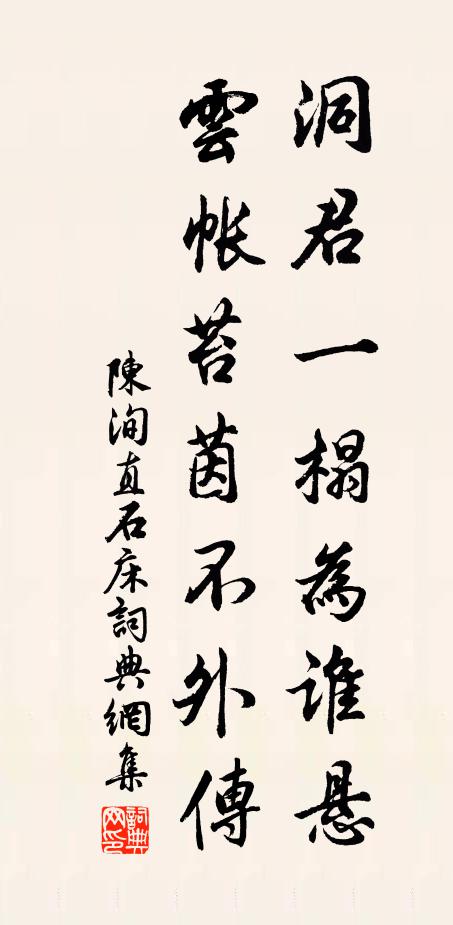 洞君一榻為誰懸
雲帳苔茵不外傳
陳洵直石床詞典網集
詞典網印